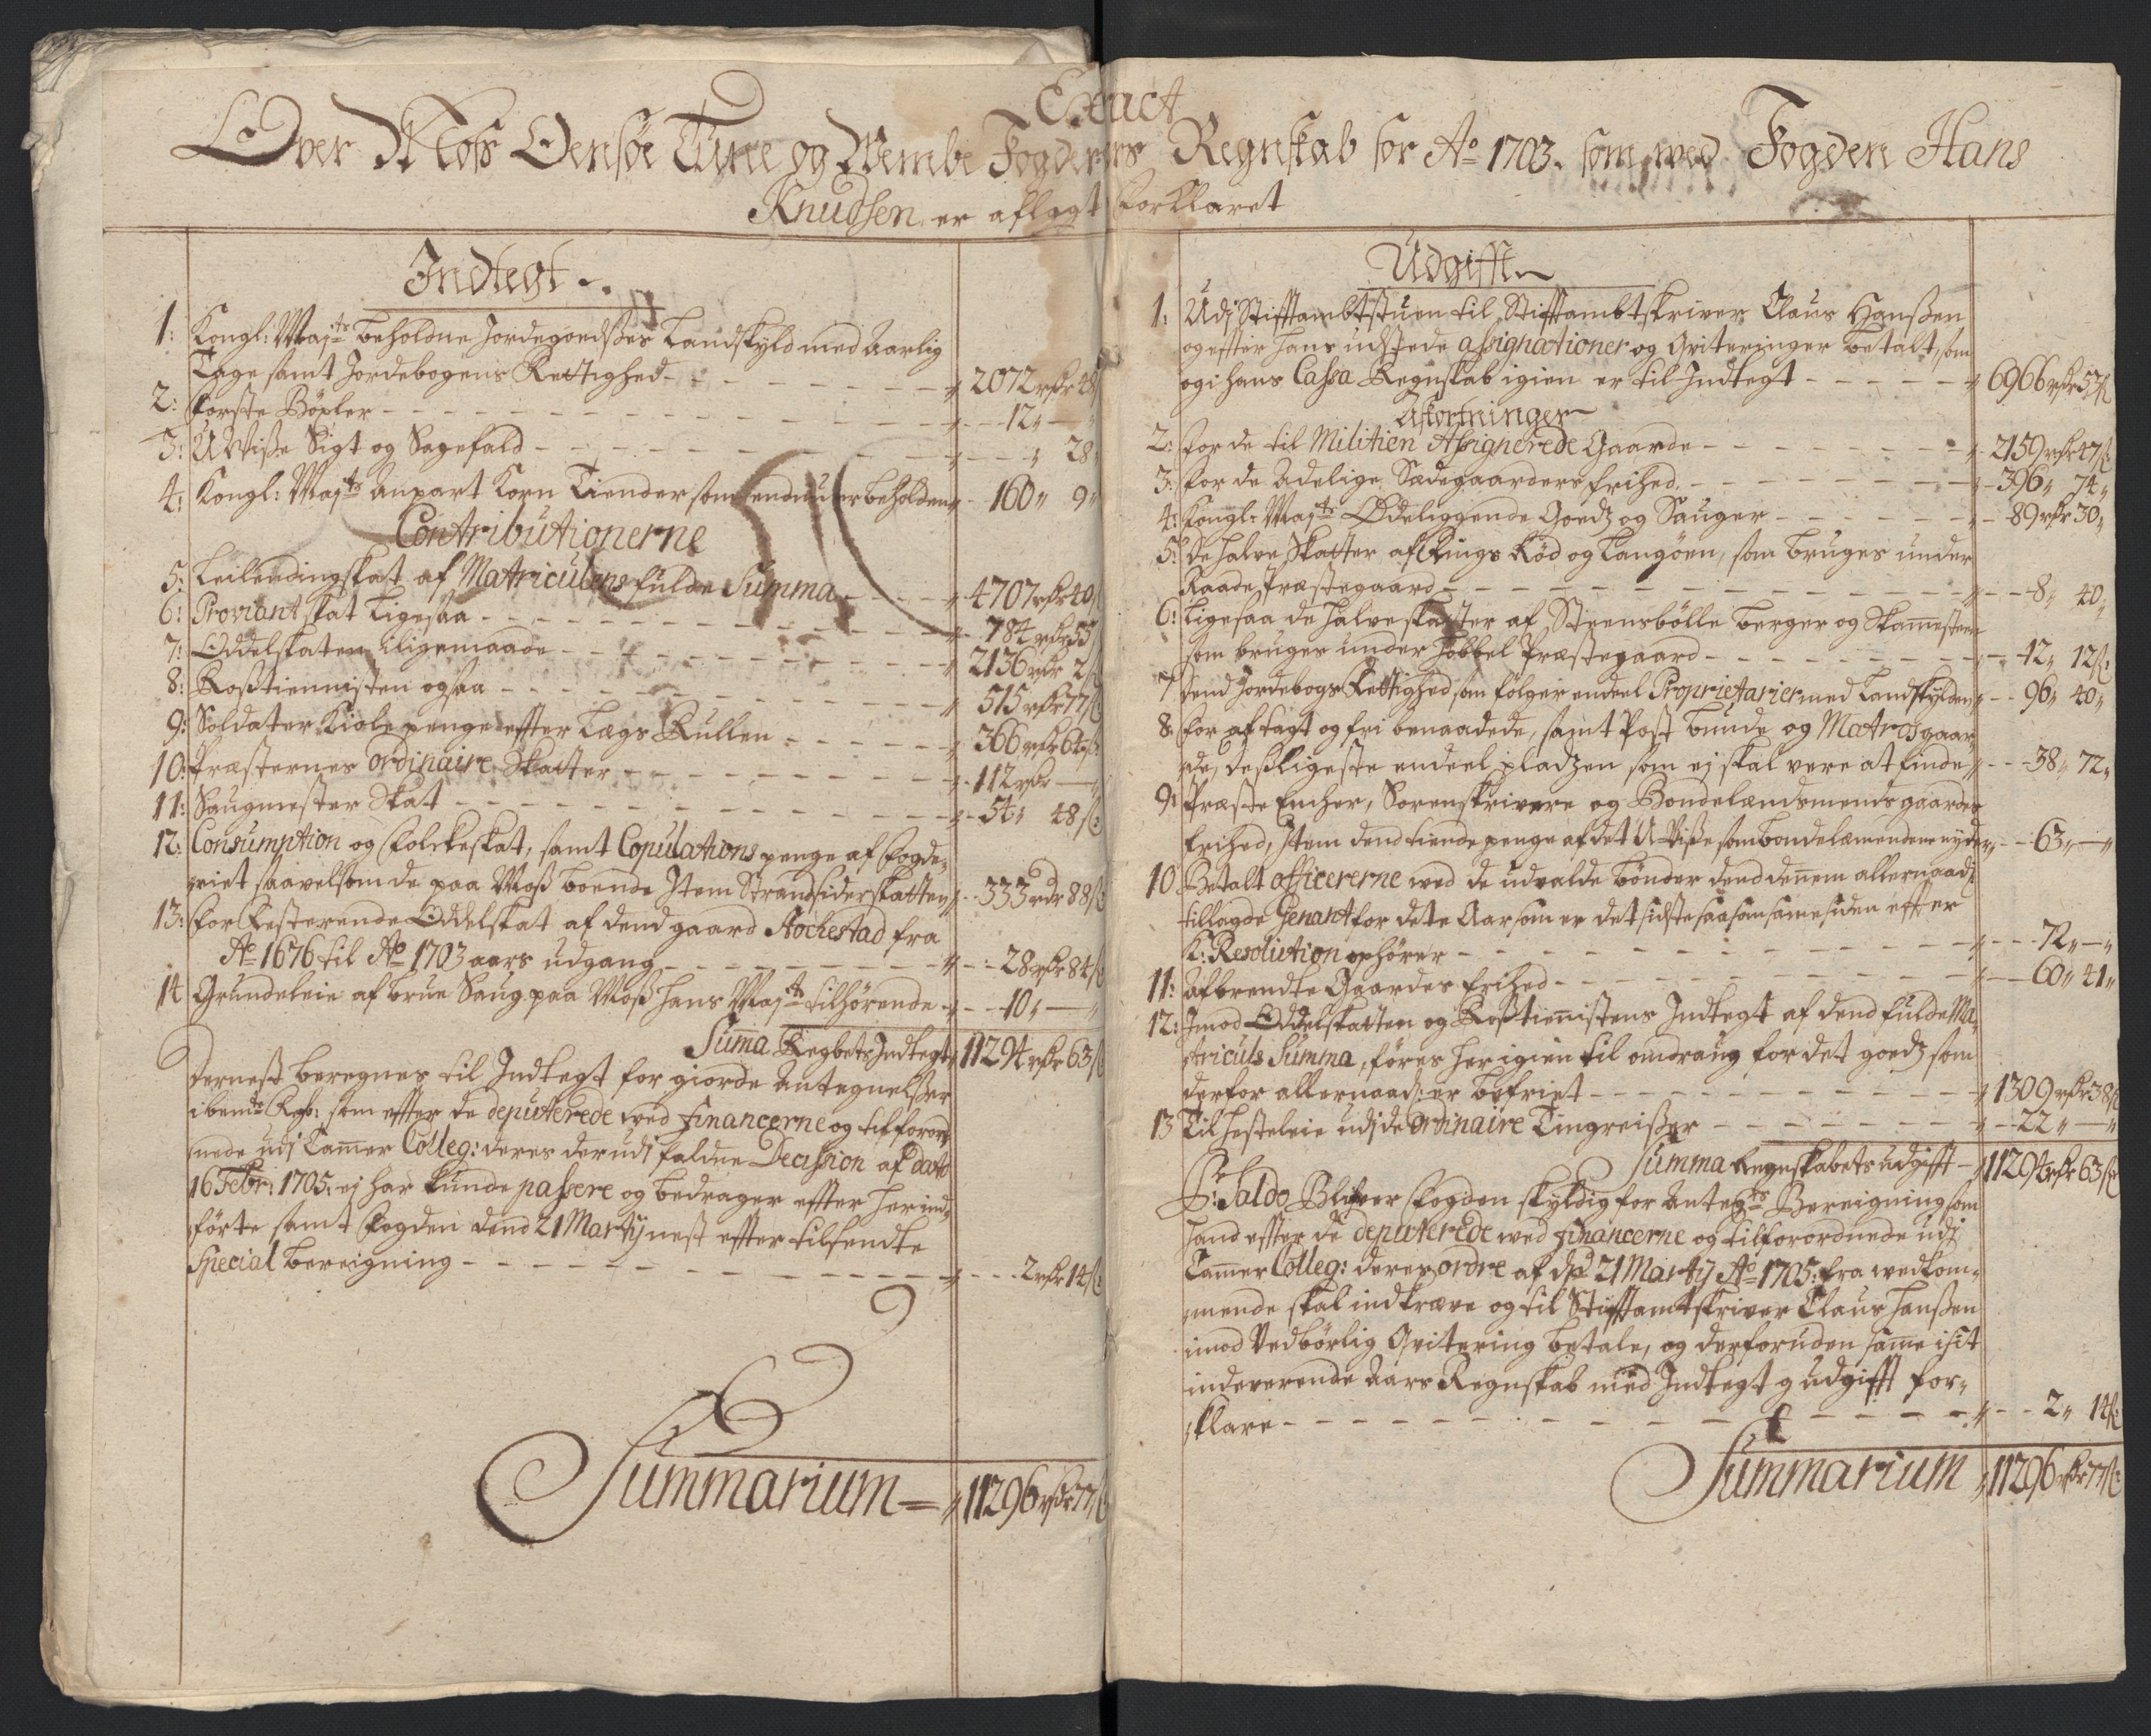 Exact
Over Moss Oensöe Tune og Wembe Fogderies Regnskab for Ao 1703. som wed Fogden Hans
Knudsen er aflagt forklaret
Indtegt
1: Kongl: Maj:ts beholdne Jordegoedsses Landskyld med Aarlig
Tage samt Jordebogens Rettighed - - - 2072 rdr 48
2: Første Böxler - - - 12 „ —
3: UWisse Sigt og Sagefald - - - „ 28
4: Kongl: Maj:ts Anpart Korn Tiender som endnu er beholden - 160 „ 9 „
Contributionerne
5: Leilendingskat af Matriculens fulde Summa - - - 4707 rdr 40
6: Proviantskat ligesaa - - - 784 rdr 55
7: Oddelskaten iligemaade - - - 2136 rdr 2 ß
8: Rosstiennisten ogsaa - - - 515 rdr 77 ß
9: Soldater Kiole penge effter Lægs Rullen - - - 366 rdr 64 ß
10: Præsternes ordinaire Skatter - - - 112 rdr —
11: Saugmester Skat - - - 54 „ 48 ß
12: Consumption og Folckeskat, samt Copulations penge af Fogde„
riet saavelsom de paa Moss boende Item Strandsiderskatten - 333 rdr 88 ß
13: For Resterende Oddelskat af dend gaard Aochestad fra
Ao 1676 til Ao 1703 aars udgang - - - 28 rdr 84 ß
14 Grundeleie af brue Saug paa Moss Hans Maj:ts tilhørende - - 10 „ —
Suma Regbets Indtegt 11294 rdr 63 ß
Dernest beregnes til Indtegt for giorde Antegnelsser
ibemte Regb: som effter de deputerede wed financerne og tilforord„
nede udi Camer Colleg: deres derudi faldne Decission af dato
16 Febr: 1705: ej har kunde passere og bedrager effter herind„
förte samt Fogden dend 21 Martij nest effter tilsendte
Special bereigning - - - 2 rdr 14 ß
Summarium = 11296 rdr 77 ß
Udgifft
1: Udj Stifftambtstuen til Stifftambtskriver Claus Hanssen
og effter hans udstede assignationer og Qviteringer betalt, som
og i hans Cassa Regnskab igien er til Indtegt - - - 6966 rdr 57 ß
Afkortninger
2: For de til Militien Assignerede Gaarde - - - 2159 rdr 47 ß
3: For de Adelige Sædegaarders frihed - - - 396 „ 74 „
4: Kongl: Maj:ts Ödeliggende Goedz og Sauger - - - 89 rdr 30 „
5: De halve Skatter af Rings Röd og Langöen, som bruges under
Raade Præstegaard - - - 8 „ 40 „
6: Ligesaa de halve skatter af Steensbölle Berger og Skamesteen
som bruges under Hobbel Præstegaard - - - 12 „ 12 ß
7 Dend Jordebogs Rettighed som følger endeel Proprietarier med Landskylden - - 96 „ 40 „
8: For aftagt og fri benaadede, samt Post bunde og Matros gaar„
de, desligeste endeel pladzen som ej skal vere at finde - - - 38 „ 72 „
9: Præste Encher, Sorenskrivere og Bondelændsmends gaardes
frihed, Item dend tiende penge af det UVisse som bondelænsmendene nyder - - 63 „ —
10 Betalt officererne wed de udvalde bönder dend denem allernaad:
tillagde Genant for dete Aar som er det sidste saasom same siden effter
K: Resolution ophører - - - 72 „ —
11: Afbrendte Gaardes frihed - - - 60 „ 41 „
12: Imod Oddelskatten og Rosstiennistens Indtegt af dend fulde Ma„
triculs Summa, føres her igien til omdraug for det goedz som
derfor allernaad: er befriet - - - 1309 rdr 38 ß
13 Til hesteleie udj de ordinaire Tingreisser - - - 22 „ —
Summa Regnskabets udgifft - 11294 rdr 63 ß
Pr: Saldo Blifver Fogden skyldig for Anteg:s Bereigning som
hand effter de deputerede wed financerne og tilforordnede udj
Camer Colleg: deres ordre af dto 21 Martij Ao 1705: fra wedkom„
mende skal indkræve og til Stifftamtskriver Claus Hanssen
imod Vedbörlig Qvitering betale, og derforuden same i sit
indeverende Aars Regnskab med Indtegt og udgifft for„
klare - - - 2 „ 14 ß
Summarium 11296 rdr 77 ß